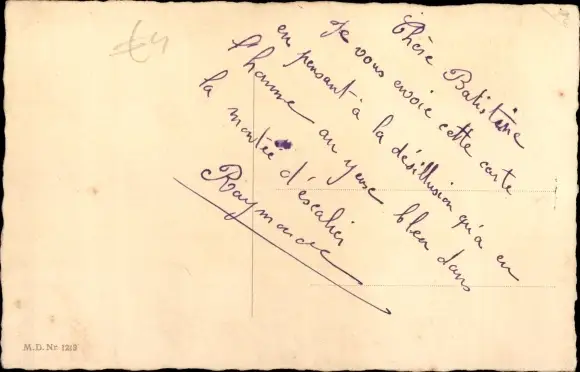 Chère Batistine
Je vous envoie cette carte
en pensant à la désillusion qu'à eu
l'homme au yeux bleu dans
la montée d'escalier
Raymonde
£4
M.D. Nr 1215